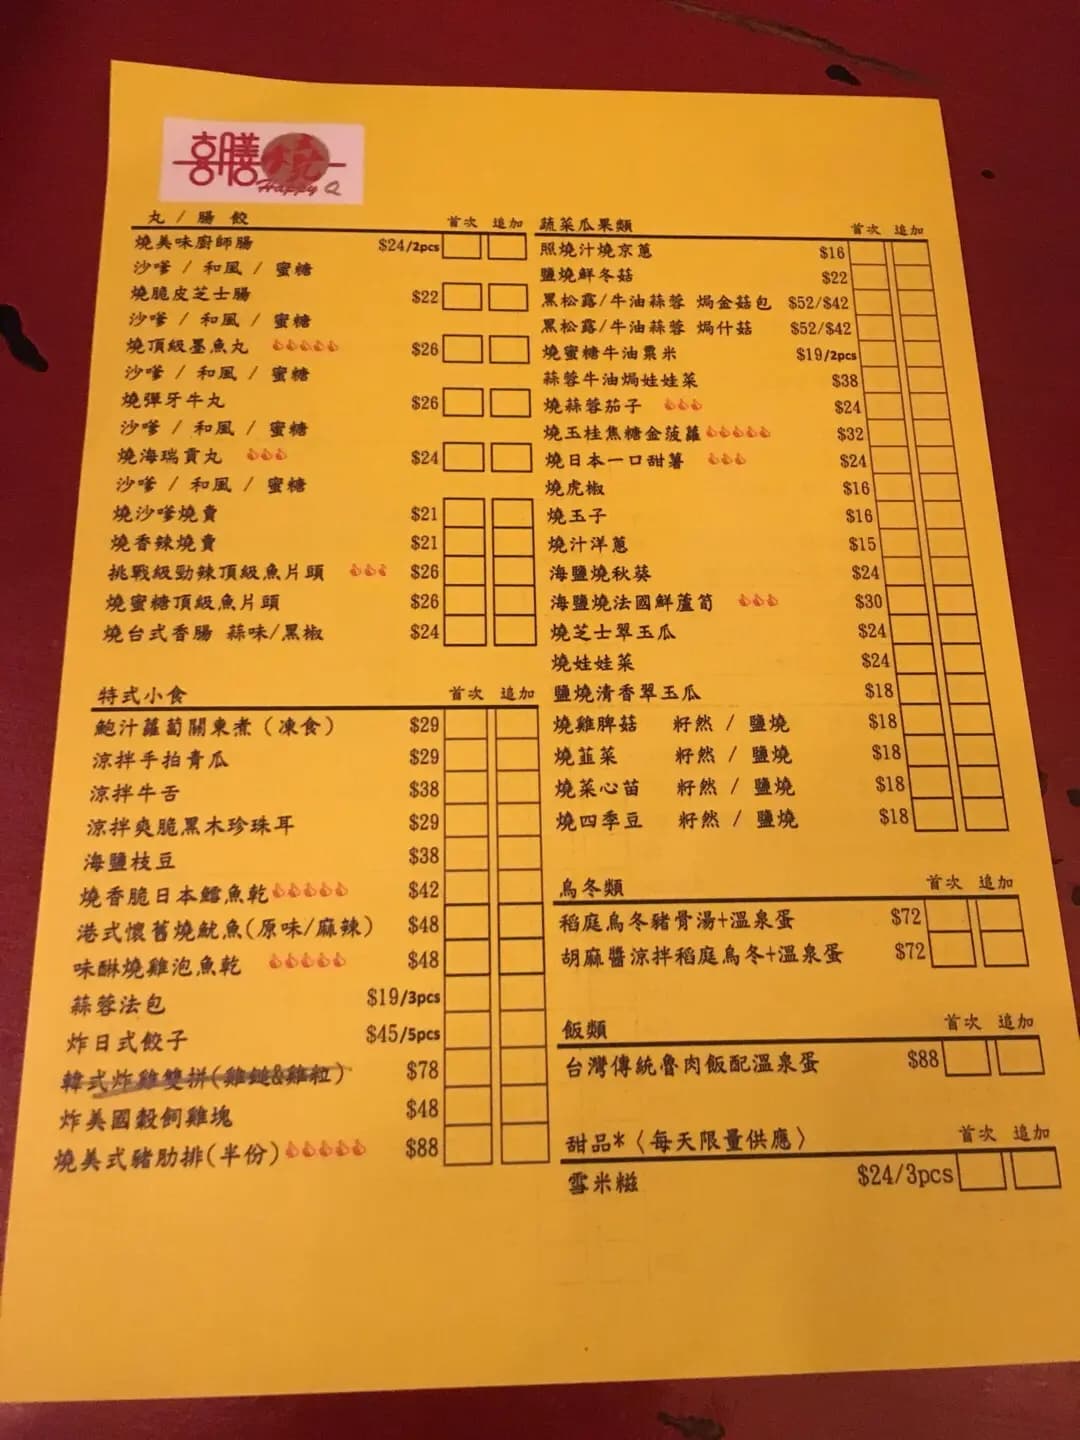 喜膳燒
Happy Q
丸 / 腸 餃 首次 追加
燒美味廚師腸 $24/2pcs
沙嗲 / 和風 / 蜜糖
燒脆皮芝士腸 $22
沙嗲 / 和風 / 蜜糖
燒頂級墨魚丸 $26
沙嗲 / 和風 / 蜜糖
燒彈牙牛丸 $26
沙嗲 / 和風 / 蜜糖
燒海瑞貢丸 $24
沙嗲 / 和風 / 蜜糖
燒沙嗲燒賣 $21
燒香辣燒賣 $21
挑戰級勁辣頂級魚片頭 $26
燒蜜糖頂級魚片頭 $26
燒台式香腸 蒜味/黑椒 $24
特式小食 首次 追加
鮑汁蘿蔔關東煮(凍食) $29
涼拌手拍青瓜 $29
涼拌牛舌 $38
涼拌爽脆黑木珍珠耳 $29
海鹽枝豆 $38
燒香脆日本鱈魚乾 $42
港式懷舊燒魷魚(原味/麻辣) $48
味醂燒雞泡魚乾 $48
蒜蓉法包 $19/3pcs
炸日式餃子 $45/5pcs
韓式炸雞雙拼(雞鎚&雞粒) $78
炸美國穀飼雞塊 $48
燒美式豬肋排(半份) $88
蔬菜瓜果類 首次 追加
照燒汁燒京蔥 $16
鹽燒鮮冬菇 $22
黑松露/牛油蒜蓉 焗金菇包 $52/$42
黑松露/牛油蒜蓉 焗什菇 $52/$42
燒蜜糖牛油粟米 $19/2pcs
蒜蓉牛油焗娃娃菜 $38
燒蒜蓉茄子 $24
燒玉桂焦糖金菠蘿 $32
燒日本一口甜薯 $24
燒虎椒 $16
燒玉子 $16
燒汁洋蔥 $15
海鹽燒秋葵 $24
海鹽燒法國鮮蘆筍 $30
燒芝士翠玉瓜 $24
燒娃娃菜 $24
鹽燒清香翠玉瓜 $18
燒雞脾菇 籽然 / 鹽燒 $18
燒韮菜 籽然 / 鹽燒 $18
燒菜心苗 籽然 / 鹽燒 $18
燒四季豆 籽然 / 鹽燒 $18
烏冬類 首次 追加
稻庭烏冬豬骨湯+溫泉蛋 $72
胡麻醬涼拌稻庭烏冬+溫泉蛋 $72
飯類 首次 追加
台灣傳統魯肉飯配溫泉蛋 $88
甜品*〈每天限量供應〉 首次 追加
雪米糍 $24/3pcs